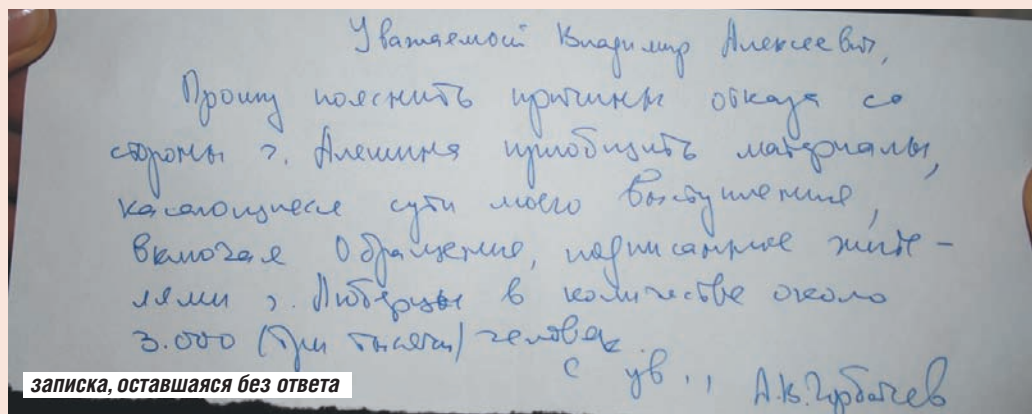 Уважаемый Владимир Алексеевич,
Прошу пояснить причины отказа со
стороны г. Алешина приобщить материалы,
касающиеся сути моего выступления,
включая Обращение, подписанное жите-
лями г. Люберцы в количестве около
3.000 (три тысячи) человек.
С ув.,, А.В.Горбачев
записка, оставшаяся без ответа